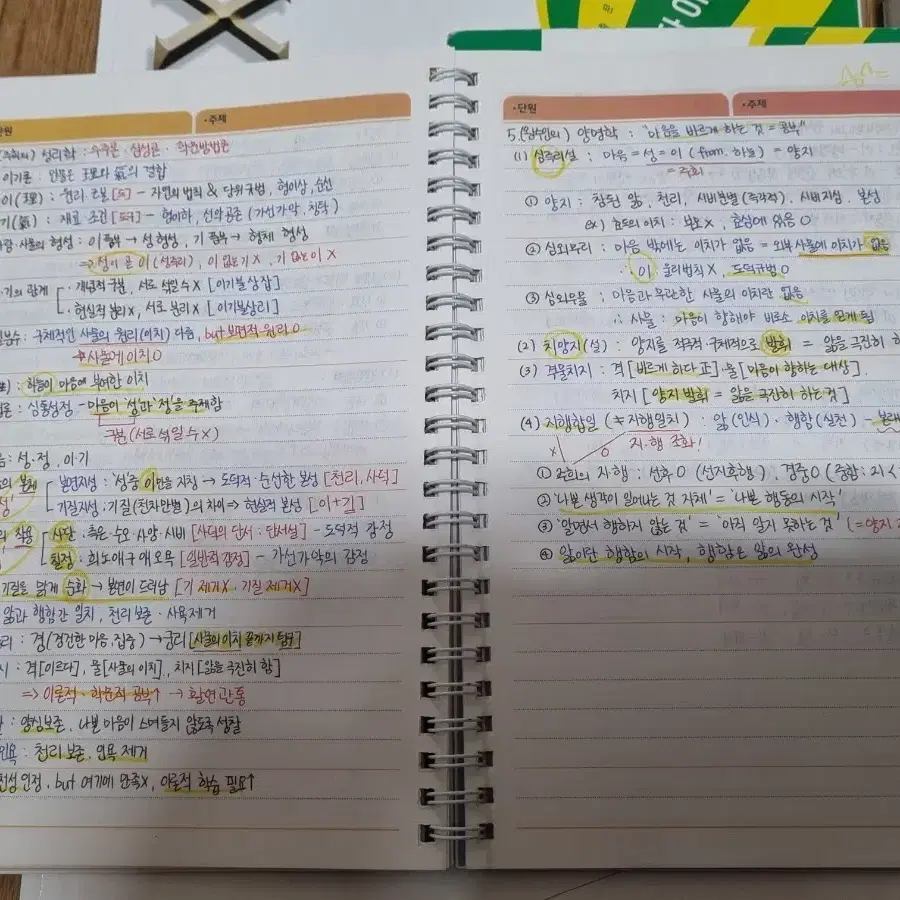 단원
• 주제
(주희의) 성리학 : 우주론 · 심성론 · 학문방법론
이기론 : 만물은 理와 氣의 결합
이(理) : 원리. 근본 - 자연의 법칙 & 당위규범, 형이상, 순선
기(氣) : 재료. 조건 - 형이하, 선악공존 (가선가악, 청탁)
사물의 형성 : 이 품부 → 성 형성, 기 품부 → 형체 형성
⇒ 성이 곧 이 (성즉리), 이 없는 기 X, 기 없는 이 X
기의 관계
· 개념적 구분, 서로 섞일 수 X [이기불상잡]
· 현실적 분리 X, 서로 분리 X [이기불상리]
구체적인 사물의 원리(이치) 다름, but 보편적 원리 O
사물에 이치 O
: 하늘이 마음에 부여한 이치
심통성정 - 마음이 '성'과 '정'을 주재함
구분 (서로 섞일 수 X)
성·정, 이·기
본연지성 : '성'중 이만을 지칭 → 도덕적·순선한 본성 [천리, 사덕]
기질지성 : 기질(천차만별)의 차이 ⇒ 현실적 본성 [이+기]
사단 : 측은·수오·사양·시비 [사덕의 단서 : 단서설] - 도덕적 감정
칠정 : 희노애구애오욕 [일반적 감정] - 가선가악의 감정
기질을 맑게 순화 → 본연이 드러남 [기 제거 X, 기질 제거 X]
앎과 행함간 일치, 천리 보존 · 사욕제거
경(경건한 마음, 집중) → 궁리 [사물의 이치 끝까지 탐구]
: 격[이르다], 물[사물의 이치], 치지[앎을 극진히 함]
⇒ 이론적·학문적 공부↑ → 활연관통
: 양심보존, 나쁜 마음이 스며들지 않도록 성찰
인욕 : 천리 보존, 인욕 제거
인정, but 여기에 만족X, 이론적 학습 필요↑
• 단원
• 주제
5. (왕수인의) 양명학 : "마음을 바르게 하는 것 = 공부"
(1) 심즉리설 : 마음 = 성 = 이 (from. 하늘) = 양지
= 주희
① 양지 : 참된 앎, 천리, 시비분별 (즉각적), 시비지심, 본성
ex) 효도의 이치 : 부모 X, 효심에 있음 O
② 심외무리 : 마음 밖에는 이치가 없음 = 외부 사물에 이치가 없음
· 이 : 물리법칙 X, 도덕규범 O
③ 심외무물 : 마음과 무관한 사물의 이치란 없음
∴ 사물 : 마음이 향해야 비로소 이치를 얻게 됨
(2) 치양지(설) : 양지를 적극적·구체적으로 발휘 = 앎을 극진히
(3) 격물치지 : 격 [바르게 하다 正]·물 [마음이 향하는 대상]
치지 [양지 발휘 = 앎을 극진히 하는 것]
(4) 지행합일 (≠ 지행일치) : 앎(인식)·행함(실천) - 본래
X O 지·행 조화!
① 주희의 지·행 : 선후 O (선지후행), 경중 O (중함 : 지 <
② '나쁜 생각이 일어나는 것 자체' = '나쁜 행동의 시작'
③ '알면서 행하지 않는 것' = '아직 알지 못하는 것' (= 양지
④ 앎이란 행함의 시작, 행함은 앎의 완성